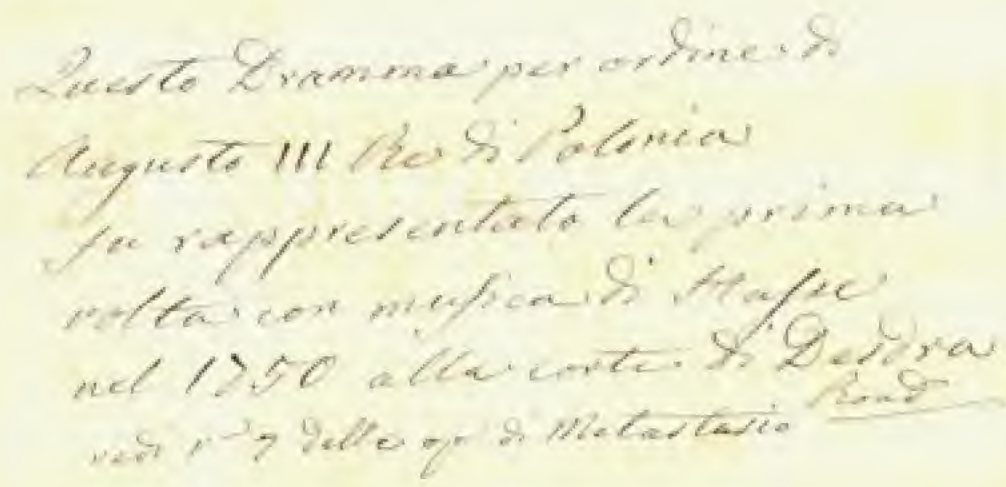 Questo Dramma per ordine di
Augusto III Re di Polonia
fu rappresentato la prima
volta con musica di Hasse
nel 1750 alla corte di Dresda
vedi 7 delle op di Metastasio